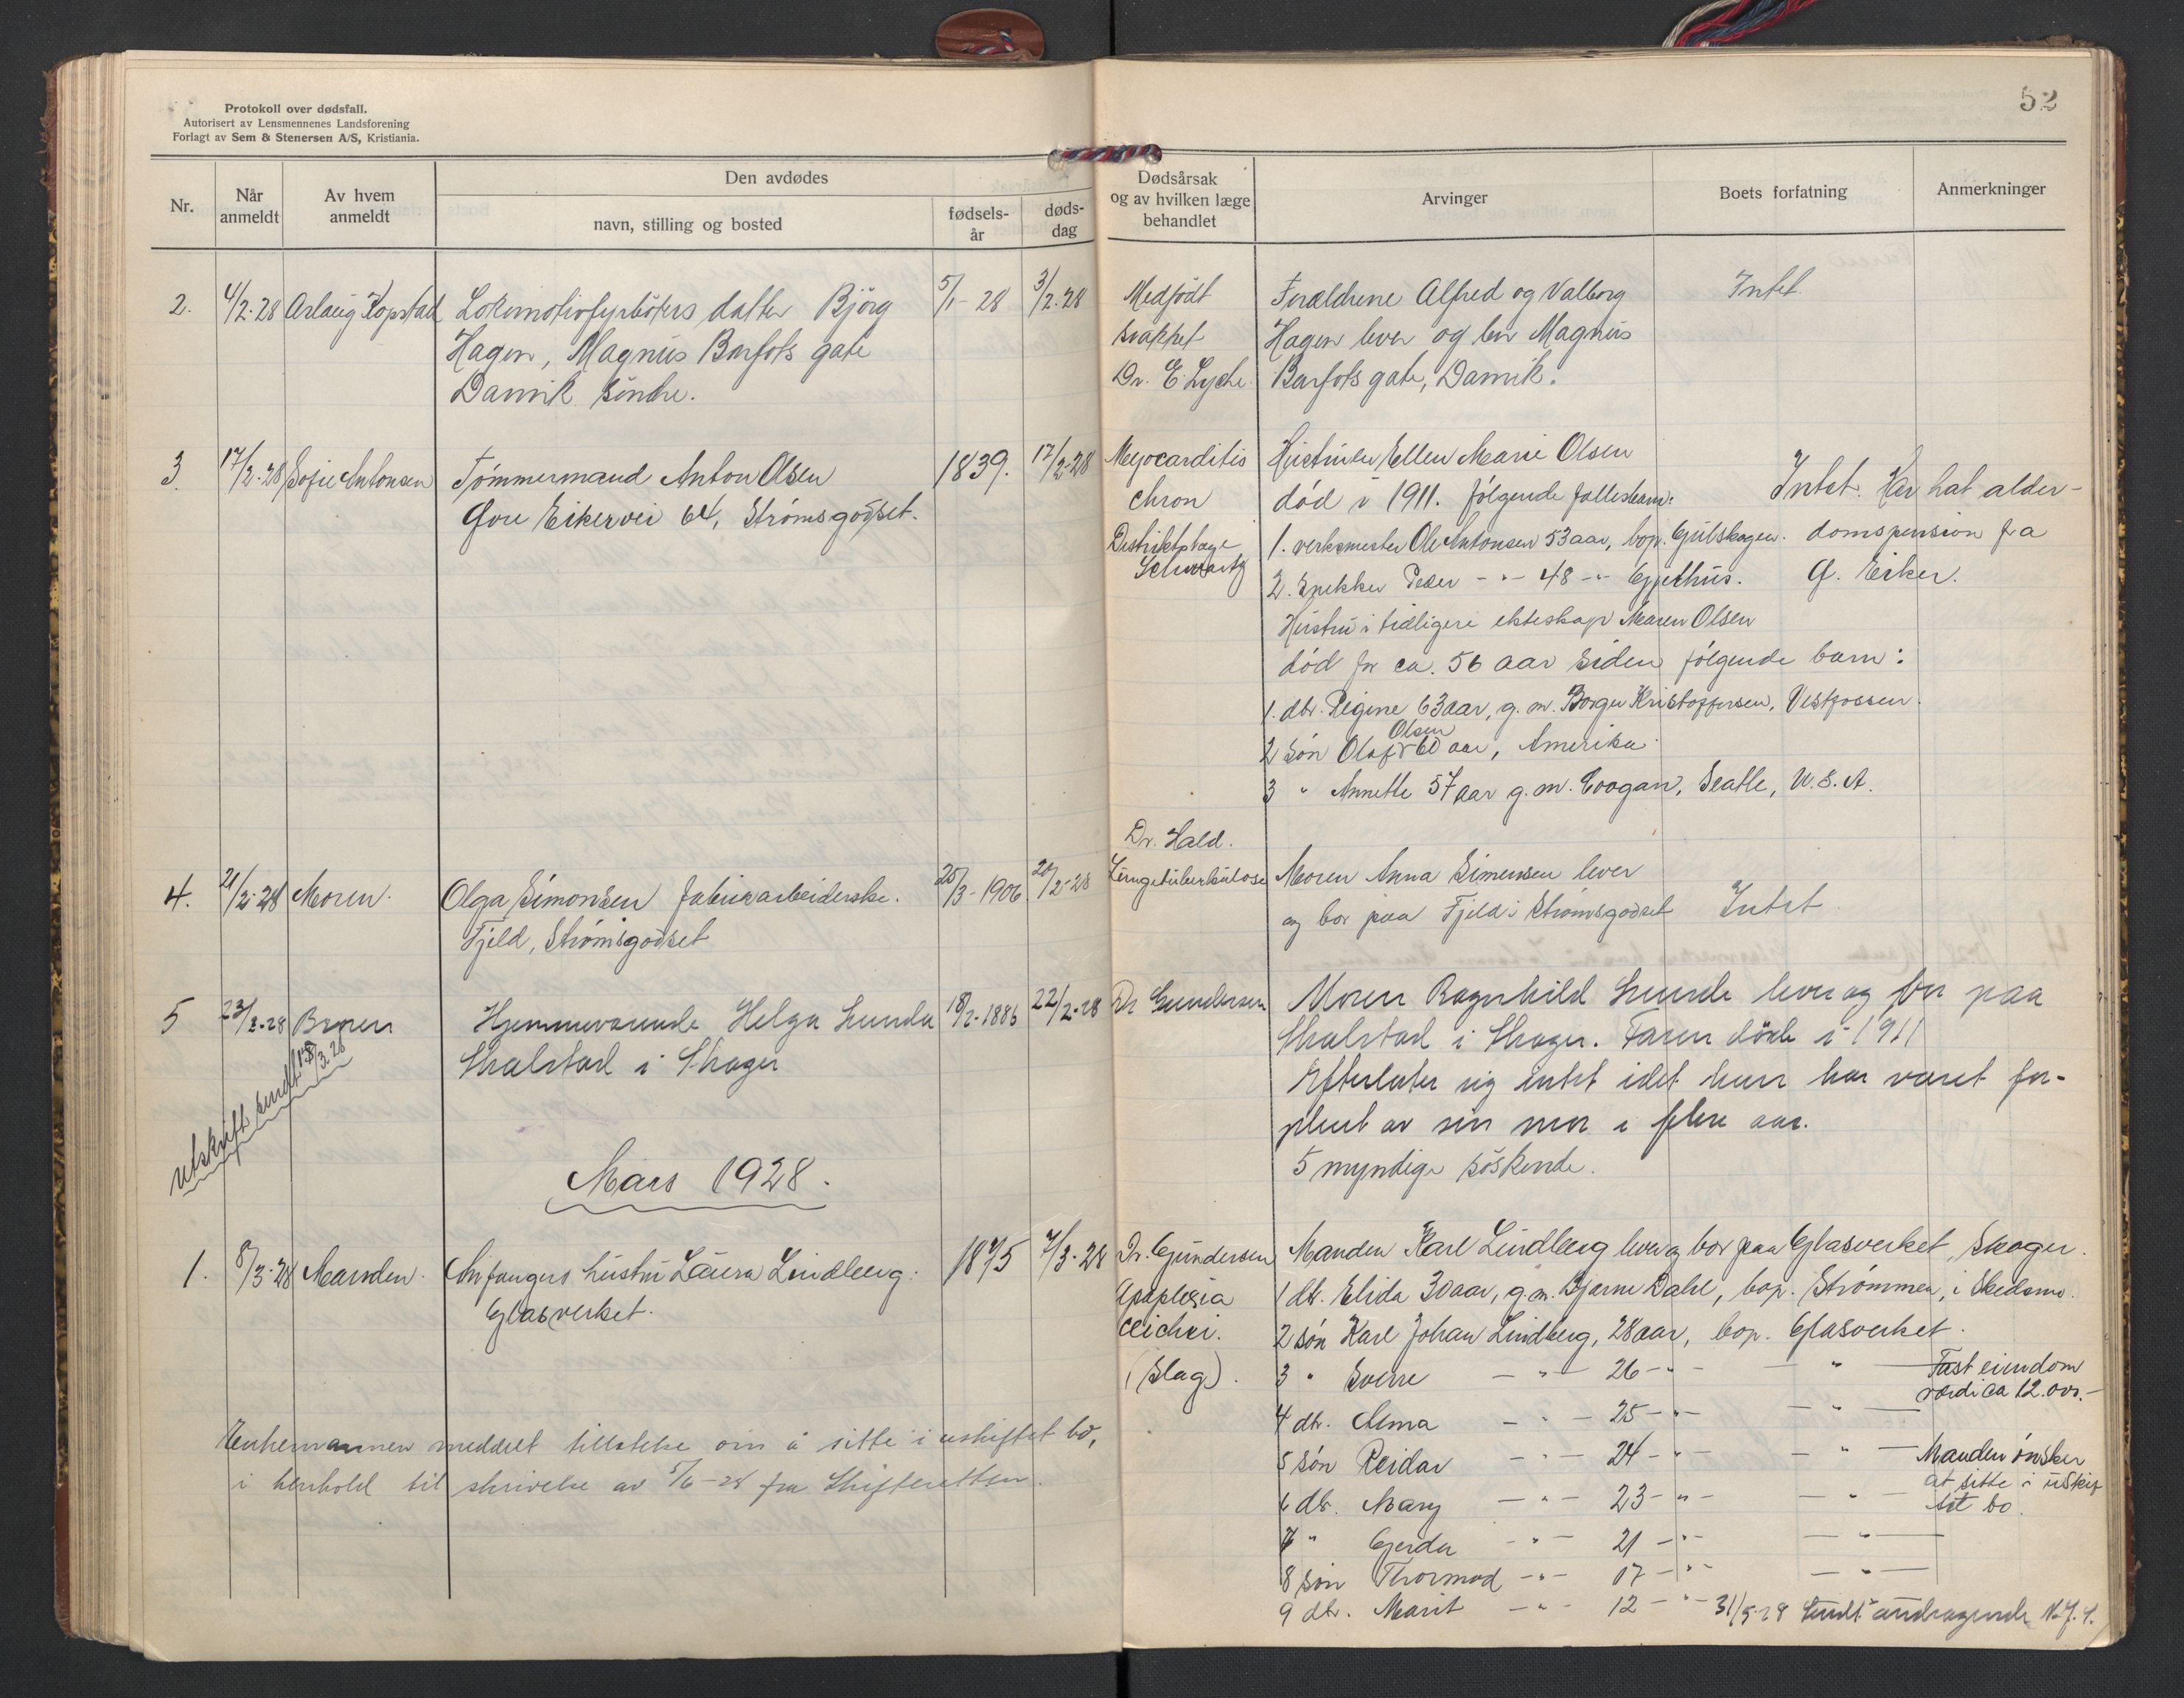 Protokoll over dødsfall.
Autorisert av Lensmennenes Landsforening
Forlagt av Sem & Stenersen A/S, Kristiania.
52
Nr.
Når anmeldt
Av hvem anmeldt
Den avdødes
navn, stilling og bosted
fødsels-år
døds-dag
Dødsårsak og av hvilken læge behandlet
Arvinger
Boets forfatning
Anmerkninger
2. 4/2-28 Aslaug Kopstad Lokomotivfyrbøters datter Bjørg 5/1-28 3/2-28
Hagen, Magnus Barfots gate
Danvik søndre.
Medfødt
svakhet
Dr. E. Lyche.
Forældrene Alfred og Valborg
Hagen lever og bor Magnus
Barfots gate, Danvik.
Intet
3. 17/2-28 Sofie Antonsen Tømmermand Anton Olsen 1839. 17/2-28
Øvre Eikervei 64, Strømsgodset.
Myocarditis
chron
Distriktslæge
Schwartz
Hustruen Ellen Marie Olsen
død i 1911. følgende fællesbarn:
1. verksmester Ole Antonsen 53 aar, bop. Gulskogen.
2. Snekker Peder - " - 48 - " - Gjethus.
Hustru i tidligere ekteskap Maren Olsen
død for ca. 56 aar siden følgende barn:
1. dtr. Regine 63 aar, g. m. Borger Kristoffersen, Vestfossen.
2 søn Olaf Olsen 60 aar, Amerika.
3 " Annette 57 aar g. m. Coogan, Seatle, U.S.A.
Intet. Har hat alder-
domspension fra
Ø. Eiker.
4. 21/2-28 Moren. Olga Simonsen fabrikarbeiderske. 25/3-1906 20/2-28
Fjeld, Strømsgodset
Dr. Hald.
Lungetuberkulose
Moren Anna Simensen lever
og bor paa Fjeld i Strømsgodset
Intet
5 23/2-28 Helga Lunde 18/2-1886 22/2-28
Hjemmeværende
Skalstad i Skoger
Utskrift sendt
Dr Gundersen
Moren Ragnhild Lunde lever og bor paa
Skalstad i Skoger. Faren døde i 1911
Efterlater sig intet idet hun har været for-
pleiet av sin mor i flere aar.
5 myndige søskende.
Mars 1928.
1. 8/3-28 Manden. hustru Laura Lindberg. 1875 7/3-28
Glasverket.
Dr. Gundersen
Apoplexia
(Slag).
Manden Karl Lindberg lever og bor paa Glasverket, Skoger.
1 dtr. Elida 30 aar, g.m. Bjarne Dahl, bop. Strømmen, i Skedsmo.
2 søn Karl Johan Lindberg, 28 aar, bop. Glasverket.
3 " Sverre - " - 26 - " - - " -
4 dtr. Alma - " - 25 - " - - " -
5 søn Reidar - " - 24 - " - - " -
6 dtr. Mary - " - 23 - " - - " -
7 " Gerda - " - 21 - " - - " -
8 søn Thormod - " - 17 - " - - " -
9 dtr. Marit - " - 12 - " -
Fast eiendom
værdi ca 12.000.-
Manden ønsker
at sitte i uskif
tet bo.
31/5-28 Sendt andragende
Enkemannen meddelt tillatelse om å sitte i uskiftet bo,
i henhold til skrivelse av 5/6-28 fra Skifteretten.